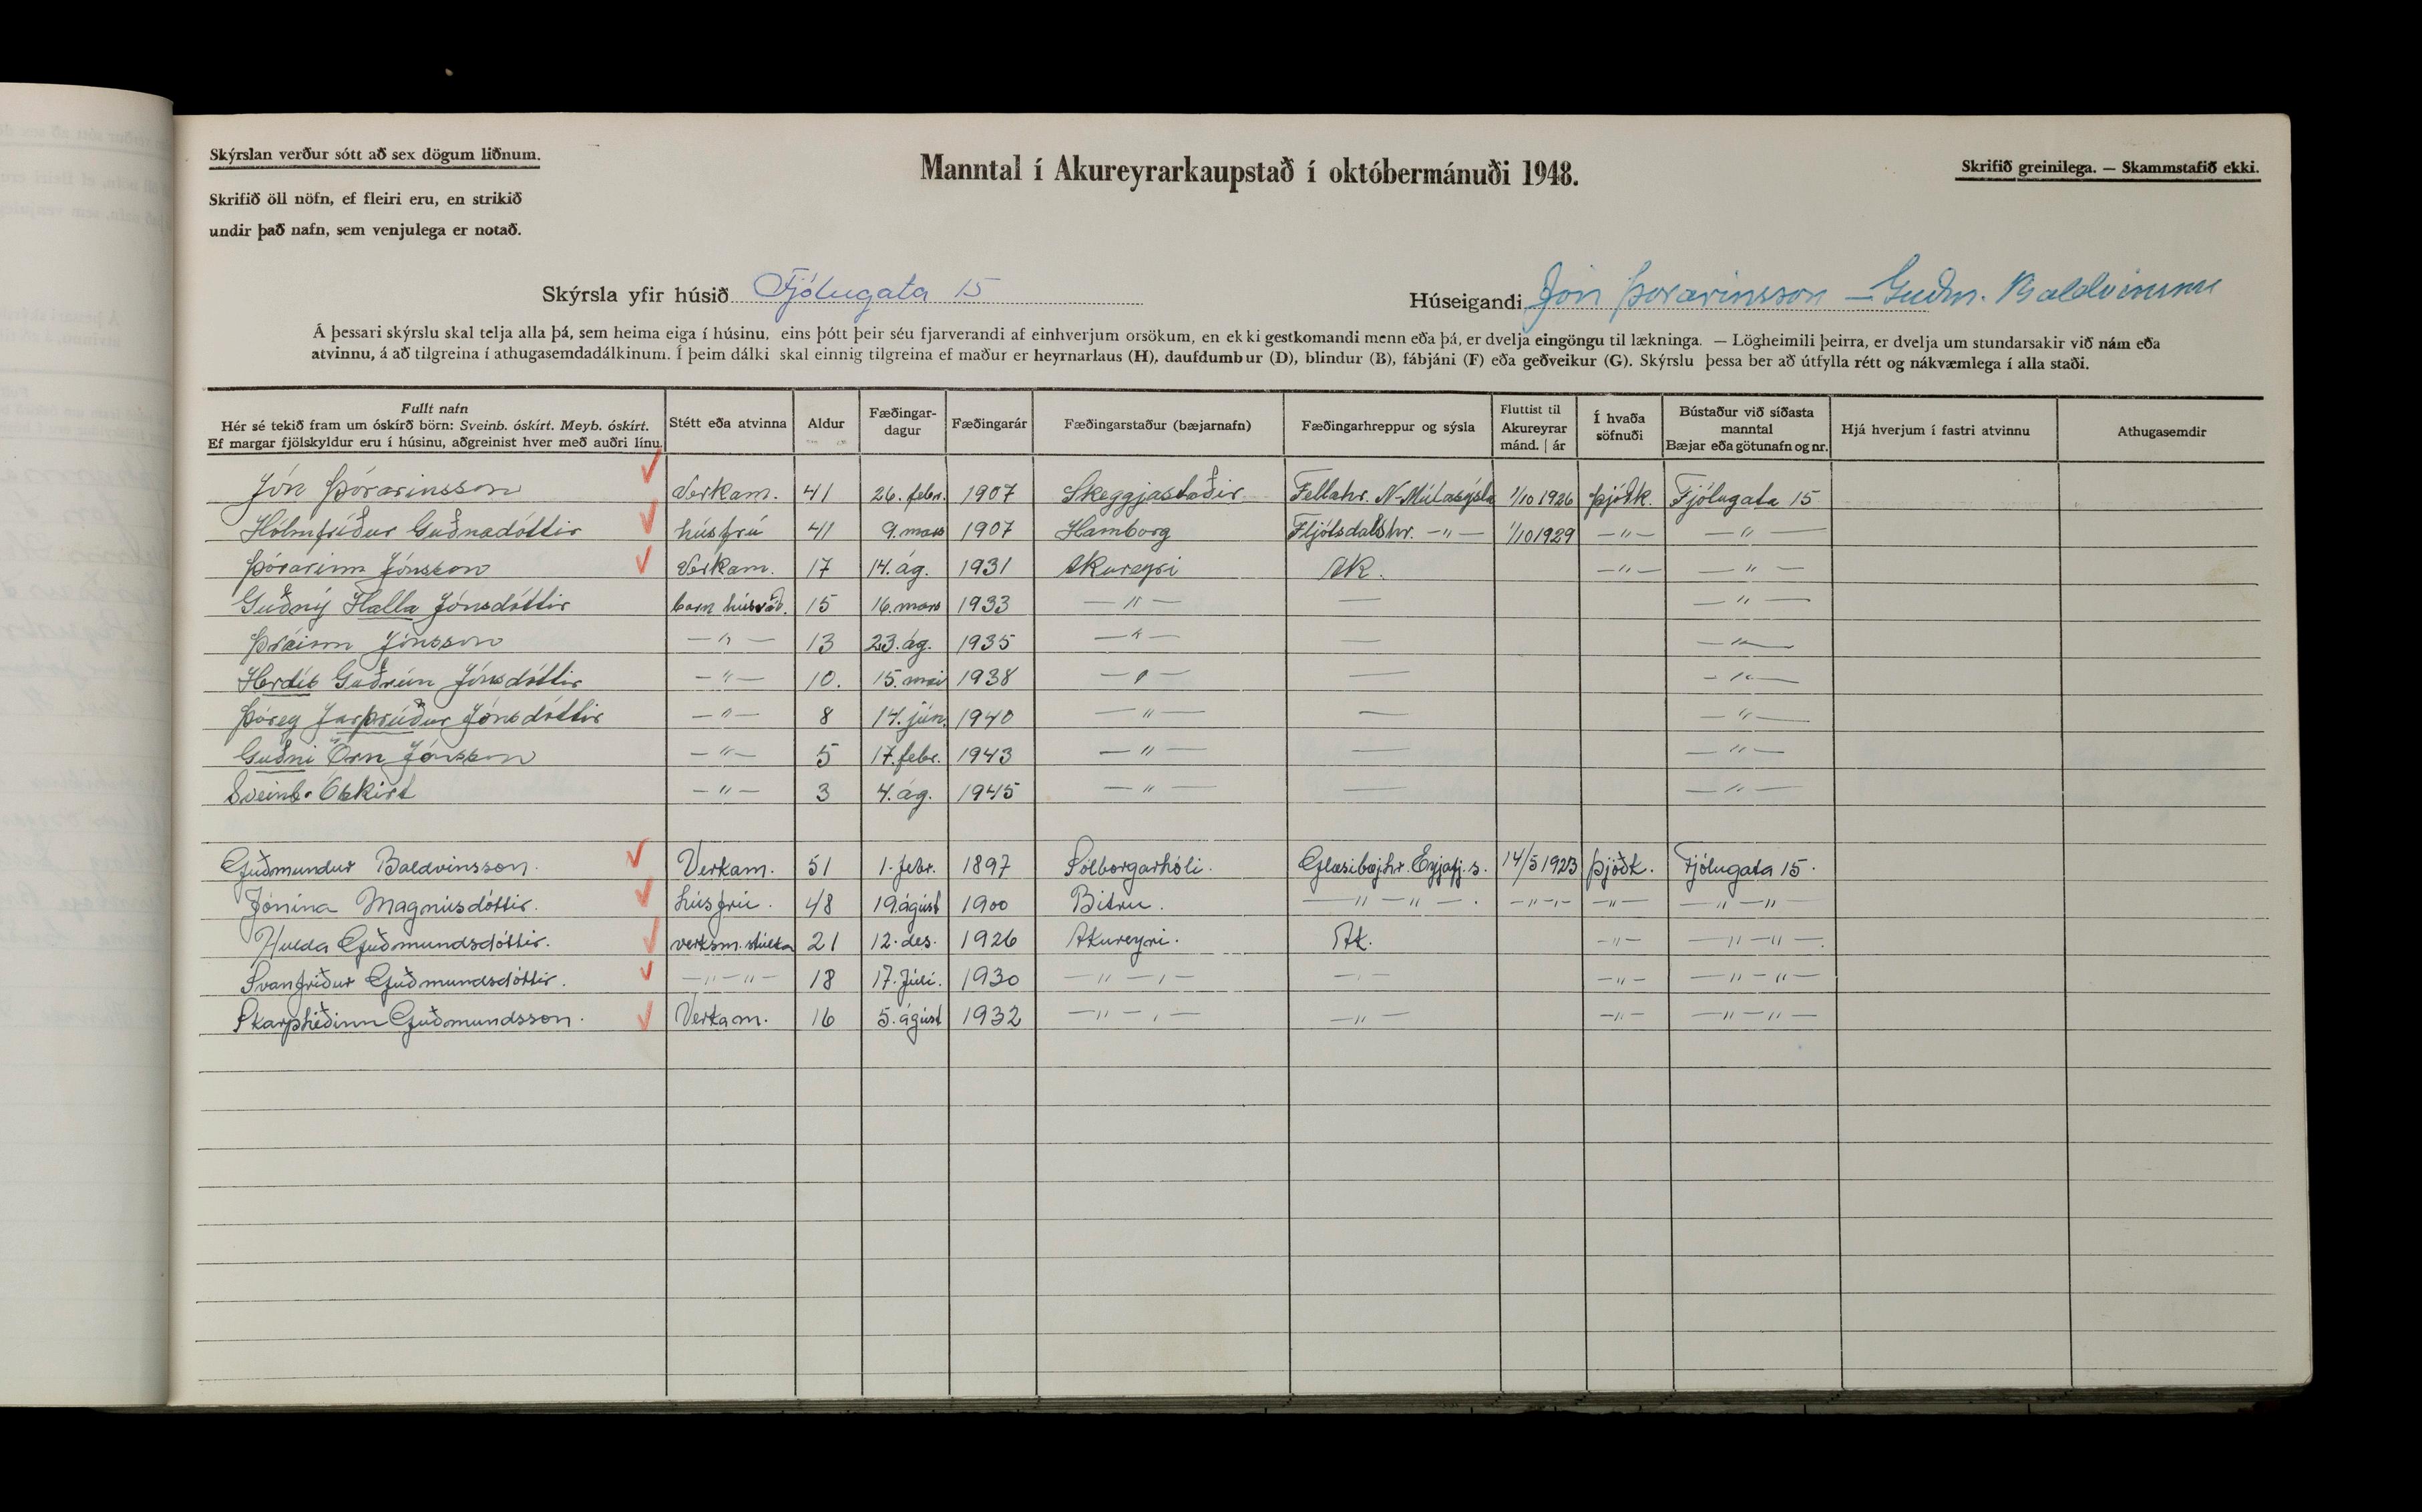 Skýrslan verður sótt að sex dögum liðnum.
Skrifið öll nöfn, ef fleiri eru, en strikið
undir það nafn, sem venjulega er notað.
Manntal í Akureyrarkaupstað í októbermánuði 1948.
Skrifið greinilega. — Skammstafið ekki.
Skýrsla yfir húsið Fjólugata 15
Húseigandi Jón Þorarinsson — Guðm. Baldvinsson
Á þessari skýrslu skal telja alla þá, sem heima eiga í húsinu, eins þótt þeir séu fjarverandi af einhverjum orsökum, en ekki gestkomandi menn eða þá, er dvelja eingöngu til lækninga. — Lögheimili þeirra, er dvelja um stundarsakir við nám eða
atvinnu, á að tilgreina í athugasemdadálkinum. Í þeim dálki skal einnig tilgreina ef maður er heyrnarlaus (H), daufdumbur (D), blindur (B), fábjáni (F) eða geðveikur (G). Skýrslu þessa ber að útfylla rétt og nákvæmlega í alla staði.
Fullt nafn
Hér sé tekið fram um óskírð börn: Sveinb. óskírt. Meyb. óskírt.
Ef margar fjölskyldur eru í húsinu, aðgreinist hver með auðri línu.
Stétt eða atvinna
Aldur
Fæðingar-
dagur
Fæðingarár
Fæðingarstaður (bæjarnafn)
Fæðingarhreppur og sýsla
Fluttist til
Akureyrar
mánd. | ár
Í hvaða
söfnuði
Bústaður við síðasta
manntal
Bæjar eða götunafn og nr.
Hjá hverjum í fastri atvinnu
Athugasemdir
Jón Þórarinsson Verkam. 41 26. febr. 1907 Skeggjastaðir Fellahr. N-Múlasýsla 1/10 1926 Þjóðk. Fjólugata 15
Hólmfríður Guðnadóttir húsfrú 41 9. mars 1907 Hamborg Fljótsdalshr. —"— 1/10 1929 —"— —"—
Þórarinn Jónsson Verkam. 17 14. ág. 1931 Akureyri AK. —"— —"—
Guðný Halla Jónsdóttir barn húsráð. 15 16. mars 1933 —"— — —"—
Þráinn Jónsson —"— 13 23. ág. 1935 —"— — —"—
Herdís Guðrún Jónsdóttir —"— 10. 15. maí 1938 —"— — —"—
Þórey Jarþrúður Jónsdóttir —"— 8 14. jún. 1940 —"— — —"—
Guðni Örn Jónsson —"— 5 17. febr. 1943 —"— — —"—
Sveinb. Óskírt —"— 3 4. ág. 1945 —"— — —"—
Guðmundur Baldvinsson. Verkam. 51 1. febr. 1897 Sólborgarhóli. Glæsibæjhr. Eyjafj.s. 14/5 1923 Þjóðk. Fjólugata 15.
Jónína Magnúsdóttir. húsfrú. 48 19. ágúst 1900 Bitru. —"—"—. —"—"— —"— —"—"—
Hulda Guðmundsdóttir. verksm. stúlka 21 12. des. 1926 Akureyri. Ak. —"— —"—"—.
Svanfríður Guðmundsdóttir. —"—"— 18 17. Júlí. 1930 —"—"— —"— —"— —"—"—
Skarphéðinn Guðmundsson. Verkam. 16 5. ágúst 1932 —"—"— —"— —"— —"—"—